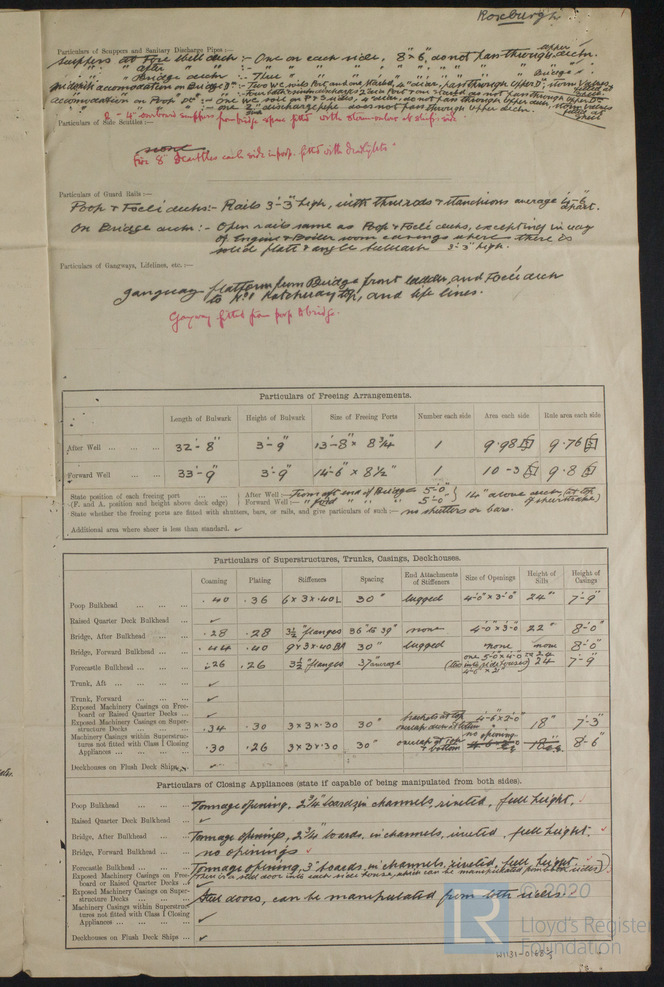 Roxburgh
Particulars of Scuppers and Sanitary Discharge Pipes :—
Scuppers at Fore Well deck :- One on each side, 8" x 6", do not pass through upper deck.
" " After " " :- " " " " " " " " " "
" " Bridge deck :- Three " " " " " " Bridge "
Particulars of Side Scuttles :—
none
For 8" Scuttles each side in poop. fitted with deadlights
Particulars of Guard Rails :—
Poop & Focle decks:- Rails 3'-3" high, with three rods & stanchions average 4'-6" apart.
On Bridge deck :- Open rails same as Poop & Focle decks, excepting in way
of Engine & Boiler room casings where there is
solid plate & angle bulwark 3'-3" high.
Particulars of Gangways, Lifelines, etc. :—
Gangway platform from Bridge front ladder, and Focle deck
to No 1 Hatchway top, and life lines.
Gangway fitted from poop to bridge.
Particulars of Freeing Arrangements.
Length of Bulwark Height of Bulwark Size of Freeing Ports Number each side Area each side Rule area each side
After Well ... ... ... 32'-8" 3'-9" 13'-8" x 8 3/4" 1 9.98 9.76
Forward Well ... ... 33'-9" 3'-9" 14'-6" x 8 1/2" 1 10-3 9.8
State position of each freeing port ... ... After Well :— From aft end of Bridge 5'-0" 14" above deck (at top
(F. and A. position and height above deck edge) Forward Well :— " ford " " " 5'-0" of sheerstrake)
State whether the freeing ports are fitted with shutters, bars, or rails, and give particulars of such :— no shutters or bars.
Additional area where sheer is less than standard. ✓
Particulars of Superstructures, Trunks, Casings, Deckhouses.
Coaming Plating Stiffeners Spacing End Attachments of Stiffeners Size of Openings Height of Sills Height of Casings
Poop Bulkhead ... ... ... .40 .36 6 x 3 x .40 L 30" lugged 4'-0" x 3'-0" 24" 7'-9"
Raised Quarter Deck Bulkhead ... ✓
Bridge, After Bulkhead ... ... .28 .28 3 1/2" flanges 36" to 39" none 4'-0" x 3'-0 22" 8'-0"
Bridge, Forward Bulkhead ... ... .44 .40 9 x 3 x .40 BA 30" lugged none none 8'-0"
Forecastle Bulkhead ... ... ... .26 .26 3 1/2" flanges 37" average 24 7'-9"
Trunk, Aft ... ... ... ... ✓
Trunk, Forward ... ... ... ✓
Exposed Machinery Casings on Free-
board or Raised Quarter Decks ... ✓
Exposed Machinery Casings on Super-
structure Decks ... ... ... .34 .30 3 x 3 x .30 30" brackets at top 4'-6" x 2'-0" 18" 7'-3"
Machinery Casings within Superstruc-
tures not fitted with Class I Closing
Appliances ... ... ... ... .30 .26 3 x 3 x .30 30" overlap at top & bottom no opening 8'-6"
Deckhouses on Flush Deck Ships ... ✓
Particulars of Closing Appliances (state if capable of being manipulated from both sides).
Poop Bulkhead ... ... ... Tonnage opening, 2 3/4" boards in channels riveted, full height.
Raised Quarter Deck Bulkhead ... ✓
Bridge, After Bulkhead ... ... Tonnage openings, 2 3/4" boards, in channels, riveted, full height. ✓
Bridge, Forward Bulkhead ... ... no openings ✓
Forecastle Bulkhead ... ... ... Tonnage opening, 3" boards, in channels, riveted, full height.
Exposed Machinery Casings on Free-
board or Raised Quarter Decks ... ✓ (There is a steel door into each side house, which can be manipulated from both sides)
Exposed Machinery Casings on Super-
structure Decks ... ... ... Steel doors, can be manipulated from both sides.
Machinery Casings within Superstruc-
tures not fitted with Class I Closing
Appliances ... ... ... ... ✓
Deckhouses on Flush Deck Ships ... ✓
© 2020
LR
Lloyd's Register
Foundation
W1131-0168 2/3